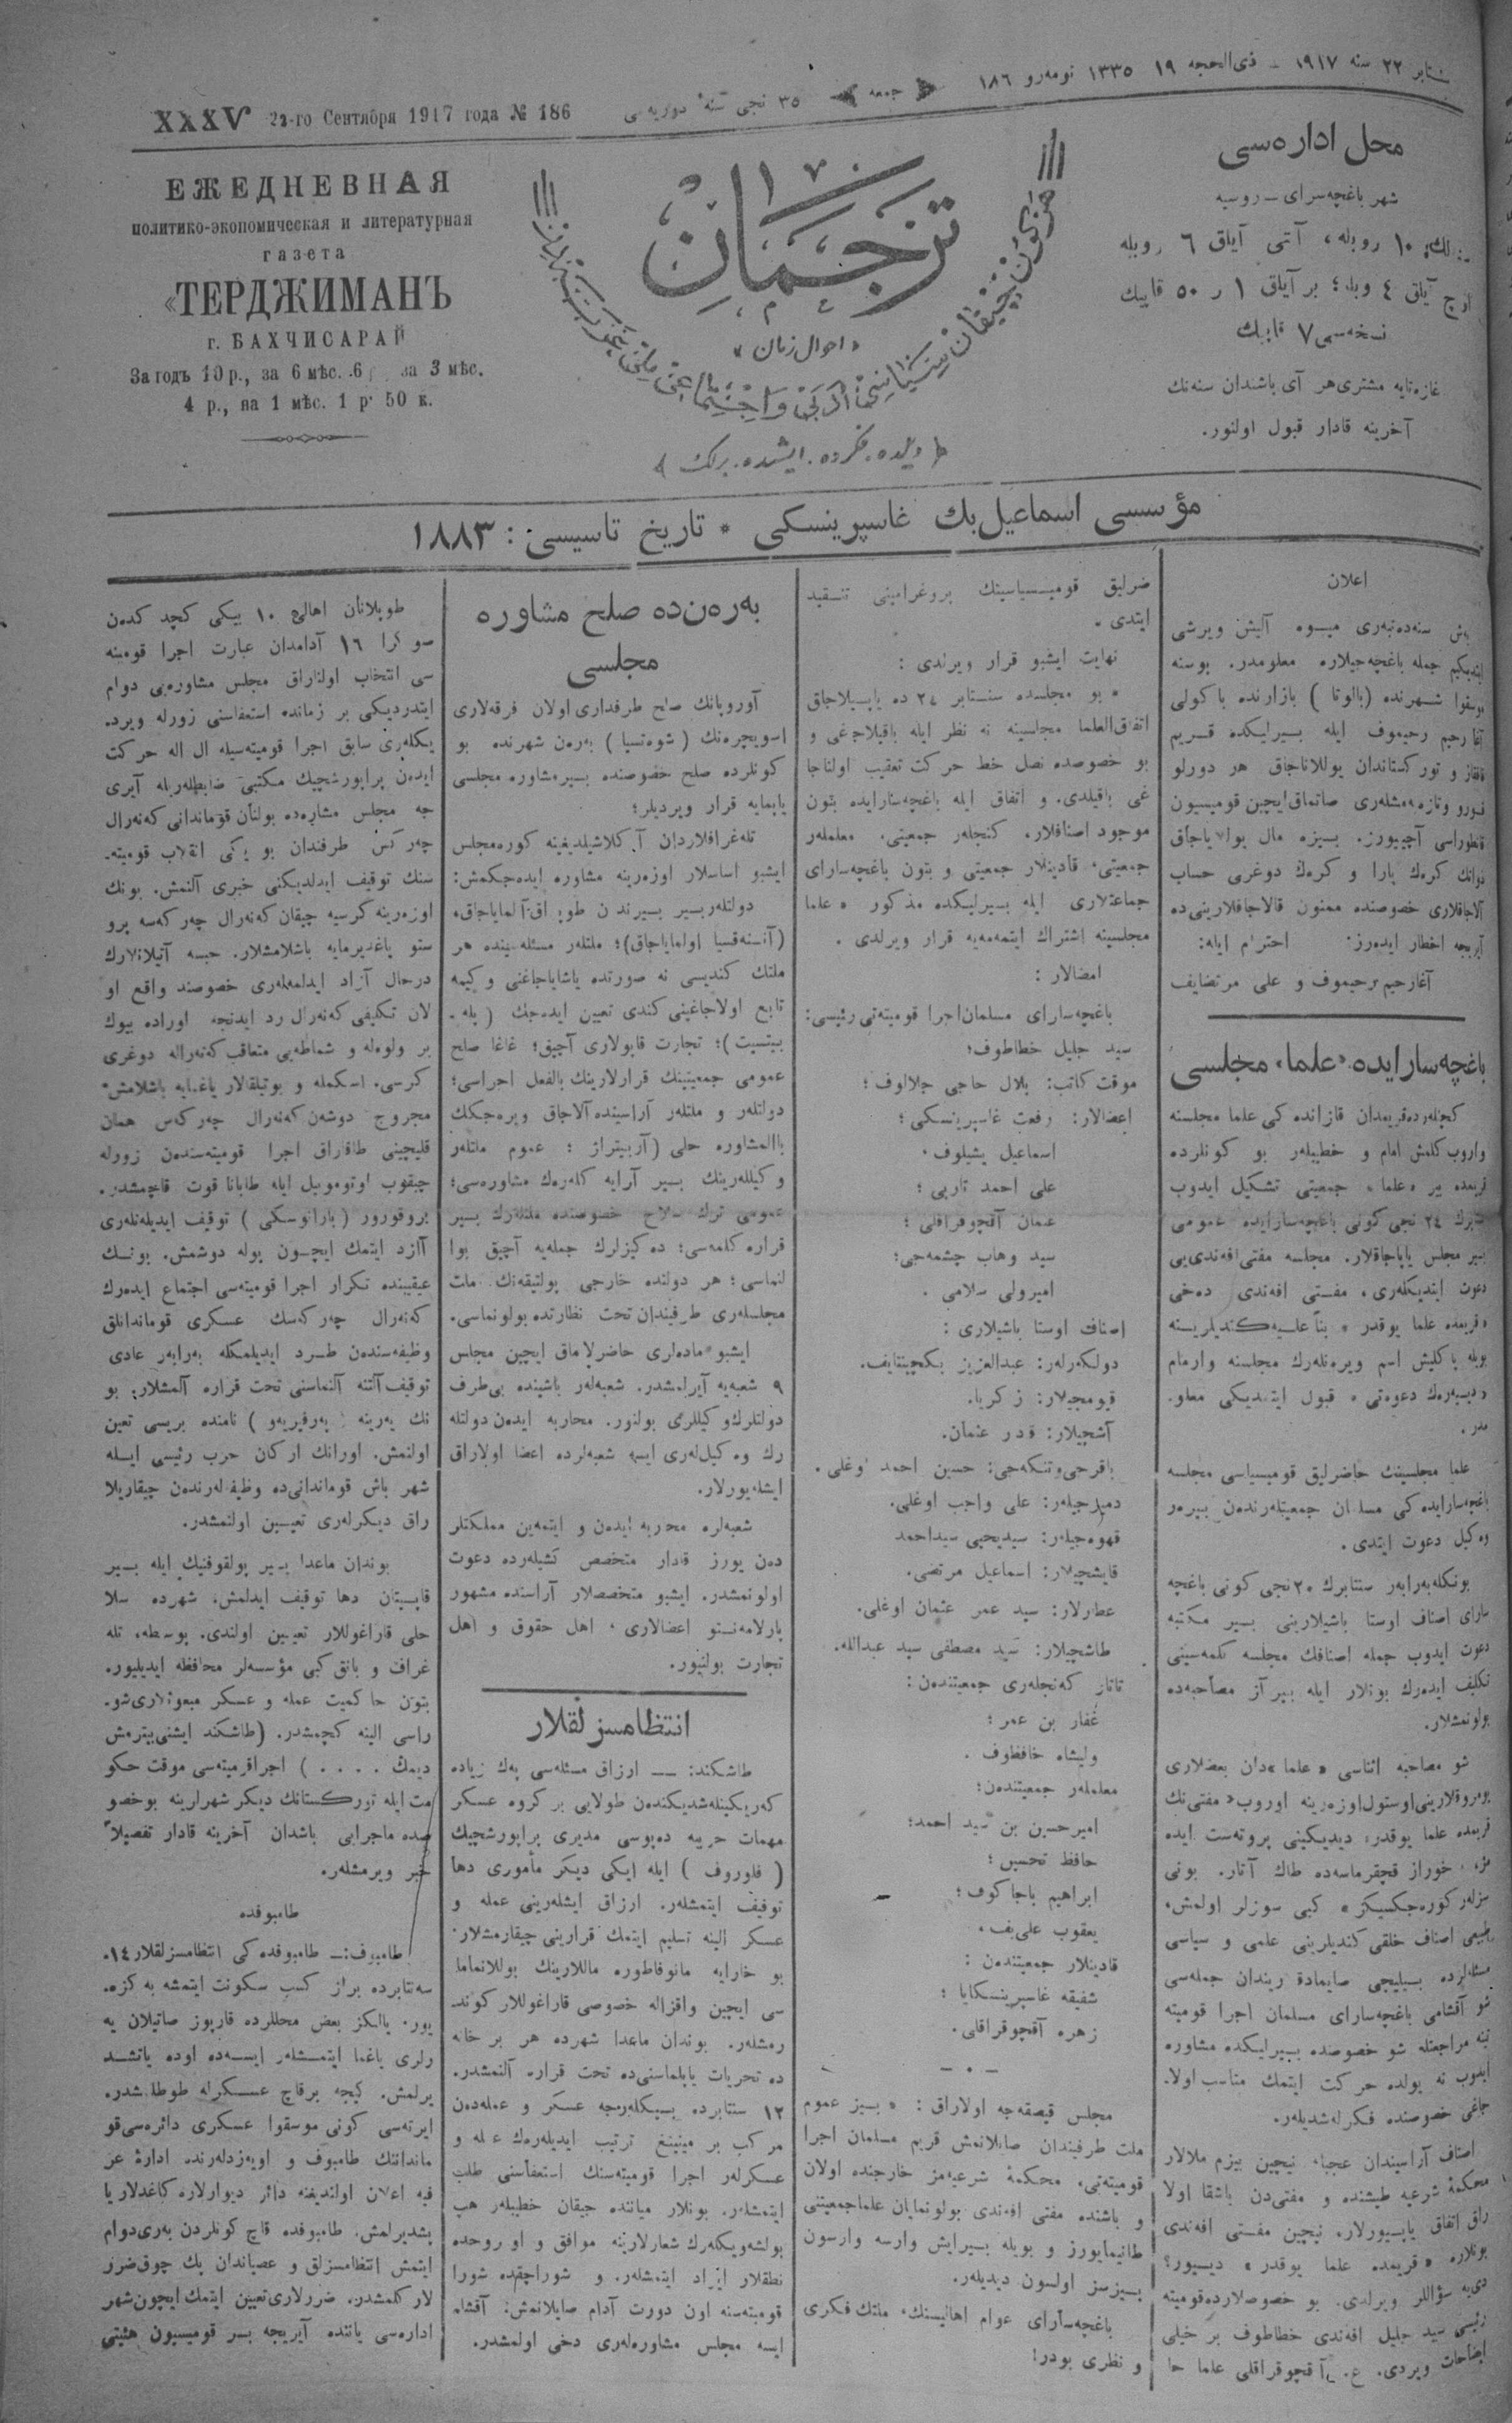 سنتابر ٢٢ سنه ١٩١٧ ــ ذى‌الحجه ١٩ ١٣٣٥ نومه‌رو ١٨٦
جمعه
٣٥ نجى سنهٔ دوريه‌سى
XXXV 22-го Сентября 1917 года № 186
ЕЖЕДНЕВНАЯ
политико-экономическая и литературная
газета
«ТЕРДЖИМАНЪ
г. БАХЧИСАРАЙ
За годъ 10 р., за 6 мѣс. 6 за 3 мѣс.
4 р., на 1 мѣс. 1 р 50 к.
ترجمان
«احوال زمان»
ديلده. فكرده. ايشده. برلك
محل اداره‌سى
شهر باغچه‌سراى ــ روسيه
١٠ روبله، آلتى آيلق ٦ روبله
اوچ آيلق ٤ روبله؛ بر آيلق ١ ر ٥٠ قاپيك
نسخه‌سى ٧ قاپيك
غازه‌تايه مشترى هر آى باشندان سنه‌نك
آخرينه قادار قبول اولنور.
مؤسسى اسماعيل بك غاسپرينسكى * تاريخ تاسيسى: ١٨٨٣
اعلان
بش سنه‌دنبه‌رى ميوه آليش ويرشى
ايتديكم جمله باغچه‌جيلاره معلومدر. بو سنه
موسقوا شهرنده (بالوتا) بازارنده باكولى
آغا رحيم رحيموف ايله بيرليكده قريم
قافقاز و توركستاندان يوللاناجاق هر دورلو
قورو و تازه يمشله‌رى صاتماق ايچين قوميسيون
قانطوراسى آچييورز. بيزه مال يوللاياجاق
ذواتك كرەك پارا و كرەك دوغرى حساب
آلاجاقلارى خصوصنده ممنون قالاجاقلارينى ده
آيريجه اخطار ايده‌رز. احترام ايله:
آغارحيم رحيموف و على مرتضايف
باغچه‌سارايده «علما» مجلسى
كچنلرده قريمدان قازانده كى علما مجلسنه
واروب كلمش امام و خطيبلر بو كونلرده
قريمده بير «علما» جمعيتى تشكيل ايدوب
سنتابرك ٢٤ نجى كونى باغچه‌سارايده عمومى
بير مجلس ياپاجاقلار. مجلسه مفتى افه‌ندى يى
دعوت ايتديكله‌رى، مفتى افه‌ندى ده‌خى
«قريمده علما يوقدر» بناً عليه كنديلرينه
بويله ياكليش اسم ويره‌نله‌رك مجلسنه وارمام
ديیه‌رەك دعوه‌تى قبول ايتمديكى معلو.
مدر.
علما مجلسينك حاضرليق قوميسياسى مجلسه
باغچه‌سارايده كى مسلمان جمعيتله‌رندن بيره‌ر
وه‌كيل دعوت ايتدى.
بونكله به‌رابه‌ر سنتابرك ٢٠ نجى كونى باغچه
ساراى اصناف اوستا باشيلارينى بير مكتبه
دعوت ايدوب جمله اصنافك مجلسه كلمه‌سينى
تكليف ايده‌رك بونلار ايله بير آز مصاحبه‌ده
بولونمشلار.
شو مصاحبه اثناسى «علما» دان بعضلارى
يومروقلارينى اوستول اوزه‌رينه اوروب «مفتى نك
قريمده علما يوقدر» ديديكينى پروته‌ست ايده
مز، خوراز قچقرماسه‌ده طاك آتار. بونى
سزلر كوره‌جكسيكز» كبى سوزلر اولمش.
طبيعى اصناف خلقى كنديلرينى علمى و سياسى
مسئله‌لرده بيليجى صايمادقلريندان جمله‌سى
شو آقشامى باغچه‌ساراى مسلمان اجرا قوميته
تينه مراجعتله شو خصوصده بييرليكده مشاوره
ايدوب نه يولده حركت ايتمك مناسب اولا.
جاغى خصوصنده فكرله‌شديله‌ر.
اصناف آراسيندان عجبا، نيچين بيزم ملالار
محكمهٔ شرعيه طيشنده و مفتى‌دن باشقا اولا
راق اتفاق ياپييورلار، نيچين مفتى افه‌ندى
بونلاره «قريمده علما يوقدر» دييیور؟
دييه سؤاللر ويرلدى. بو خصوصلارده قوميته
رئيسى سيد جليل افه‌ندى خطاطوف بر خيلى
ايضاحات ويردى. ع. آقچوقراقلى علما حا
ضرليق قوميسسياسينك پروغرامينى تنقيد
ايتدى.
نهايت ايشبو قرار ويرلدى:
«بو مجلسده سنتابر ٢٤ ده ياپيلاجاق
اتفاق العلما مجلسينه نه نظر ايله باقيلاجغى و
بو خصوصده نصل خط حركت تعقيب اولناجا
غى باقيلدى. و اتفاق ايله باغچه‌سارايده بتون
موجود اصنافلار، كنجلر جمعيتى، معلملەر
جمعيتى، قادينلار جمعيتى و بتون باغچه‌ساراى
جماعتلارى ايله بيرليكده مذكور «علما
مجلسينه اشتراك ايتمه‌مه‌يه قرار ويرلدى.
امضالار:
باغچه‌ساراى مسلمان اجرا قوميته‌تى رئيسى:
سيد جليل خطاطوف؛
موقت كاتب: بلال حاجى جلالوف؛
اعضالار: رفعت غاسپرينسكى؛
اسماعيل يشيلوف.
على احمد تارپى؛
عثمان آقچوقراقلى؛
سيد وهاب چشمه‌جى؛
اميرولى سلامى.
اصناف اوستا باشيلارى:
دولكه‌رلەر: عبدالعزيز بكچينتايف.
قيومجيلار: زكريا.
آشجيلار: قدر عثمان.
باقرجى و تنكه‌جى: حسين احمد اوغلى.
دميرجيلەر: على واجب اوغلى.
قهوه‌جيلەر: سيديحيى سيداحمد
قايشجيلار: اسماعيل مرتضى.
عطارلار: سيد عمر عثمان اوغلى.
طاشجيلار: سيد مصطفى سيد عبدالله.
تاتار كه‌نجله‌رى جمعيتندن:
غفار بن عمر؛
وليشاه خافظوف.
معلملەر جمعيتندن:
اميرحسين بن سيد احمد؛
حافظ تحسين؛
ابراهيم باجاكوف؛
يعقوب على‌يف.
قادينلار جمعيتندن:
شفيقه غاسپرينسكايا؛
زهره آقچوقراقلى.
مجلس قيصقه‌جه اولاراق: «بيز عموم
ملت طرفيندان صايلانمش قريم مسلمان اجرا
قوميته‌تى، محكمهٔ شرعيه‌مز خارجنده اولان
و باشنده مفتى افه‌ندى بولونمايان علما جمعيتنى
طانيمايورز و بويله بيرايش وارسه وارسون
بيزسز اولسون ديديله‌ر.
باغچه‌ساراى عوام اهاليسنك، ملتك فكرى
و نظرى بودر!
به‌ره‌ن‌ده صلح مشاوره
مجلسى
آوروپانك صلح طرفدارى اولان فرقه‌لارى
اسويچره‌نك (شوه‌تسيا) به‌ره‌ن شهرنده بو
كونلرده صلح خصوصنده بير مشاوره مجلسى
ياپمايه قرار ويرديلر؛
تله‌غرافلاردان آكلاشيلديغينه كوره مجلس
ايشبو اساسلار اوزه‌رينه مشاوره ايده‌جكمش:
دولتلر بير بيرندن طوپراق آلماياجاق،
(آننه‌قسيا اولماياجاق)؛ ملتلەر مسئله‌سينده هر
ملتك كنديسى نه صورتده ياشاياجاغنى و كيمه
تابع اولاجاغينى كندى تعيين ايده‌جك (پله.
بيتسيت)؛ تجارت قاپولارى آچيق؛ غاغا صلح
عمومى جمعيتينك قرارلارينك بالفعل اجراسى؛
دولتلەر و ملتلەر آراسينده آلاجاق ويره‌جكك
باالمشاوره حلى (آربيتراژ؛ عموم ملتلەر
وكيللەرينك بير آرايه كلەرەك مشاوره‌سى؛
عمومى ترك سلاح خصوصنده ملتلەرك بير
قراره كلمه‌سى؛ ده‌كيزلرك جمله‌يه آچيق بولا
لنماسى؛ هر دولتده خارجى پولتيقه‌نك ملت
مجلسله‌رى طرفيندان تحت نظارتده بولونماسى.
ايشبو ماده‌لرى حاضرلاماق ايچين مجلس
٩ شعبه‌يه آيرلمشدر. شعبه‌لەر باشينده بى‌طرف
دولتلرك وكيللرى بولنور. محاربه ايده‌ن دولتله
رك وه‌كيل‌له‌رى ايسه شعبه‌لرده اعضا اولاراق
ايشله‌يورلار.
شعبه‌لره محاربه ايده‌ن و ايتمه‌ين مملكتلر
ده‌ن يورز قادار متخصص كشيلەرده دعوت
اولونمشدر. ايشبو متخصصلار آراسنده مشهور
پارلامه‌نتو اعضالارى، اهل حقوق و اهل
تجارت بولنيور.
انتظامسزلقلار
طاشكند: ـــ ارزاق مسئله‌سى پەك زياده
كەركينله‌شديكندن طولايى بر كروه عسكر
مهمات حربيه ده‌پوسى مديرى پراپورشچيك
(فلوروف) ايله ايكى ديكر مأمورى دها
توقيف ايتمشلەر. ارزاق ايشلەرينى عمله و
عسكر الينه تسليم ايتمك قرارينى چيقارمشلار.
بو خارايه مانوفاطوره ماللارينك يوللانماما
سى ايچين واقزاله خصوصى قاراغوللار كوند.
رمشلەر. بوندان ماعدا شهرده هر بر خانه
ده تحريات ياپلماسنى‌ده تحت قراره آلنمشدر.
١٢ سنتابرده بييكله‌رجه عسكر و عمله‌دن
مركب بر ميتينغ ترتيب ايديله‌رەك عمله و
عسكرلەر اجرا قوميته‌سنك استعفأسنى طلب
ايتمشلەر. بونلار ميانده چيقان خطيبلەر هپ
بولشه‌ويكلەرك شعارلارينه موافق و او روحده
نطقلار ايراد ايتمشلەر. و شوراجقده شورا
قوميته‌سنه اون دورت آدام صايلانمش. آقشام
ايسه مجلس مشاوره‌لەرى دخى اولمشدر.
طوپلانان اهالى ١٠ بيكى كچد كدن
سوكرا ١٦ آدامدان عبارت اجرا قوميته
سى انتخاب اولناراق مجلس مشاوره‌يى دوام
ايتدرديكى بر زمانده استعفاسنى زورله ويرد.
يكله‌رى سابق اجرا قوميته‌سيله ال اله حركت
ايده‌ن پراپورشچيك مكتبى ضابطلەريله آيرى
جه مجلس مشاوره‌ده بولنأن قوماندانى كه‌نه‌رال
چەركس طرفندان بو يكى انقلاب قوميته.
سنك توقيف ايدلديكنى خبرى آلنمش. بونك
اوزه‌رينه كرسيه چيقان كه‌نه‌رال چەركه‌سه پرو
ستو ياغديرمايه باشلامشلار. حبسه آتيلانلارك
درحال آزاد ايدلمه‌لەرى خصوصند واقع او
لان تكليفى كه‌نه‌رال رد ايدنجه اوراده بيوك
بر ولوله و شماطه‌يى متعاقب كه‌نه‌راله دوغرى
كرسى، اسكمله و بوتيلقالار ياغمايه باشلامش.
مجروح دوشن كه‌نه‌رال چەركەس همان
قليچينى طاقاراق اجرا قوميته‌سندن زورله
چيقوب اوتوموبيل ايله طابانا قوت قاچمشدر.
پروقورور (بارانوسكى) توقيف ايديلەنلەرى
آازد ايتمك ايچون يوله دوشمش. بونك
عيقبنده تكرار اجرا قوميته‌سى اجتماع ايدەرك
كه‌نه‌رال چەركه‌سك عسكرى قوماندانلق
وظيفه‌سندەن طرد ايديلمكله به‌رابه‌ر عادى
توقيف آلتنه آلنماسنى تحت قراره آلمشلار؛ بو
نك يەرينه (پەرفيريەو) نامنده بريسى تعين
اولنمش. اورانك اركان حرب رئيسى ايله
شهر باش قوماندانى‌ده وظيفه‌لەرندەن چيقاريلا
راق ديكرلەرى تعيين اولنمشدر.
بوندان ماعدا بير پولقوفنيك ايله بير
قاپيتان دها توقيف ايدلمش، شهرده سلا
حلى قاراغوللار تعيين اولندى. پوسطه، تله
غراف و بانق كبى مؤسسه‌لر محافظه ايديليور.
بتون حاكميت عمله و عسكر مبعوثلارى شو.
راسى الينه كچمشدر. (طاشكند ايشنى بيترمش
ديمك . . . .) اجراقوميته‌سى موقت حكو
مت ايله توركستانك ديكر شهرلرينه بوخصو
صده ماجرايى باشدان آخرينه قادار تفصيلاً
خبر ويرمشلەر.
طامبوفده
طامبوف: ـــ طامبوفده كى انتظامسزلقلار ١٤.
سه‌نتابرده براز كسب سكونت ايتمشه به كزه.
يور. يالكز بعض محللرده قارپوز صاتيلان يه
رلرى ياغما ايتمشلەر ايسه‌ده اوده ياتشد
يرلمش. كيجه برقاچ عسكرله طوطلشدر.
ايرته‌سى كونى موسقوا عسكرى دائره‌سى قو
ماندانك طامبوف و اويەزدلەرنده ادارهٔ عر
فيه اعلان اولنديغنه دائر ديوارلاره كاغدلار يا
پشديرلمش. طامبوفده قاچ كونلردن بەرى دوام
ايتمش انتظامسزلق و عصياندان پك چوق ضرر
لار كلمشدر. ضررلارى تعيين ايتمك ايچون شهر
اداره‌سى ياننده آيريجه بر قوميسيون هئيتى